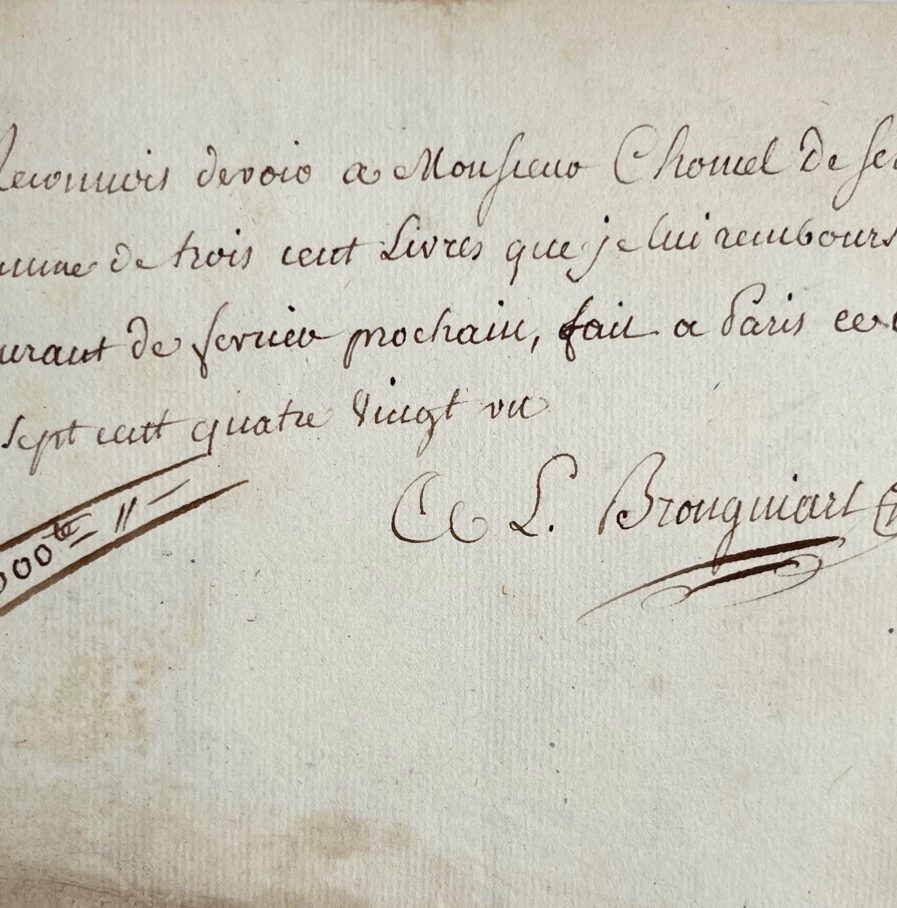 Reconnois devoir a Monsieur Chomel de se
mme de trois cent Livres que je lui rembours
urant de fevrier prochain, fait a Paris ce
sept cent quatre Vingt un
000 lt = " =
L. Brongniart